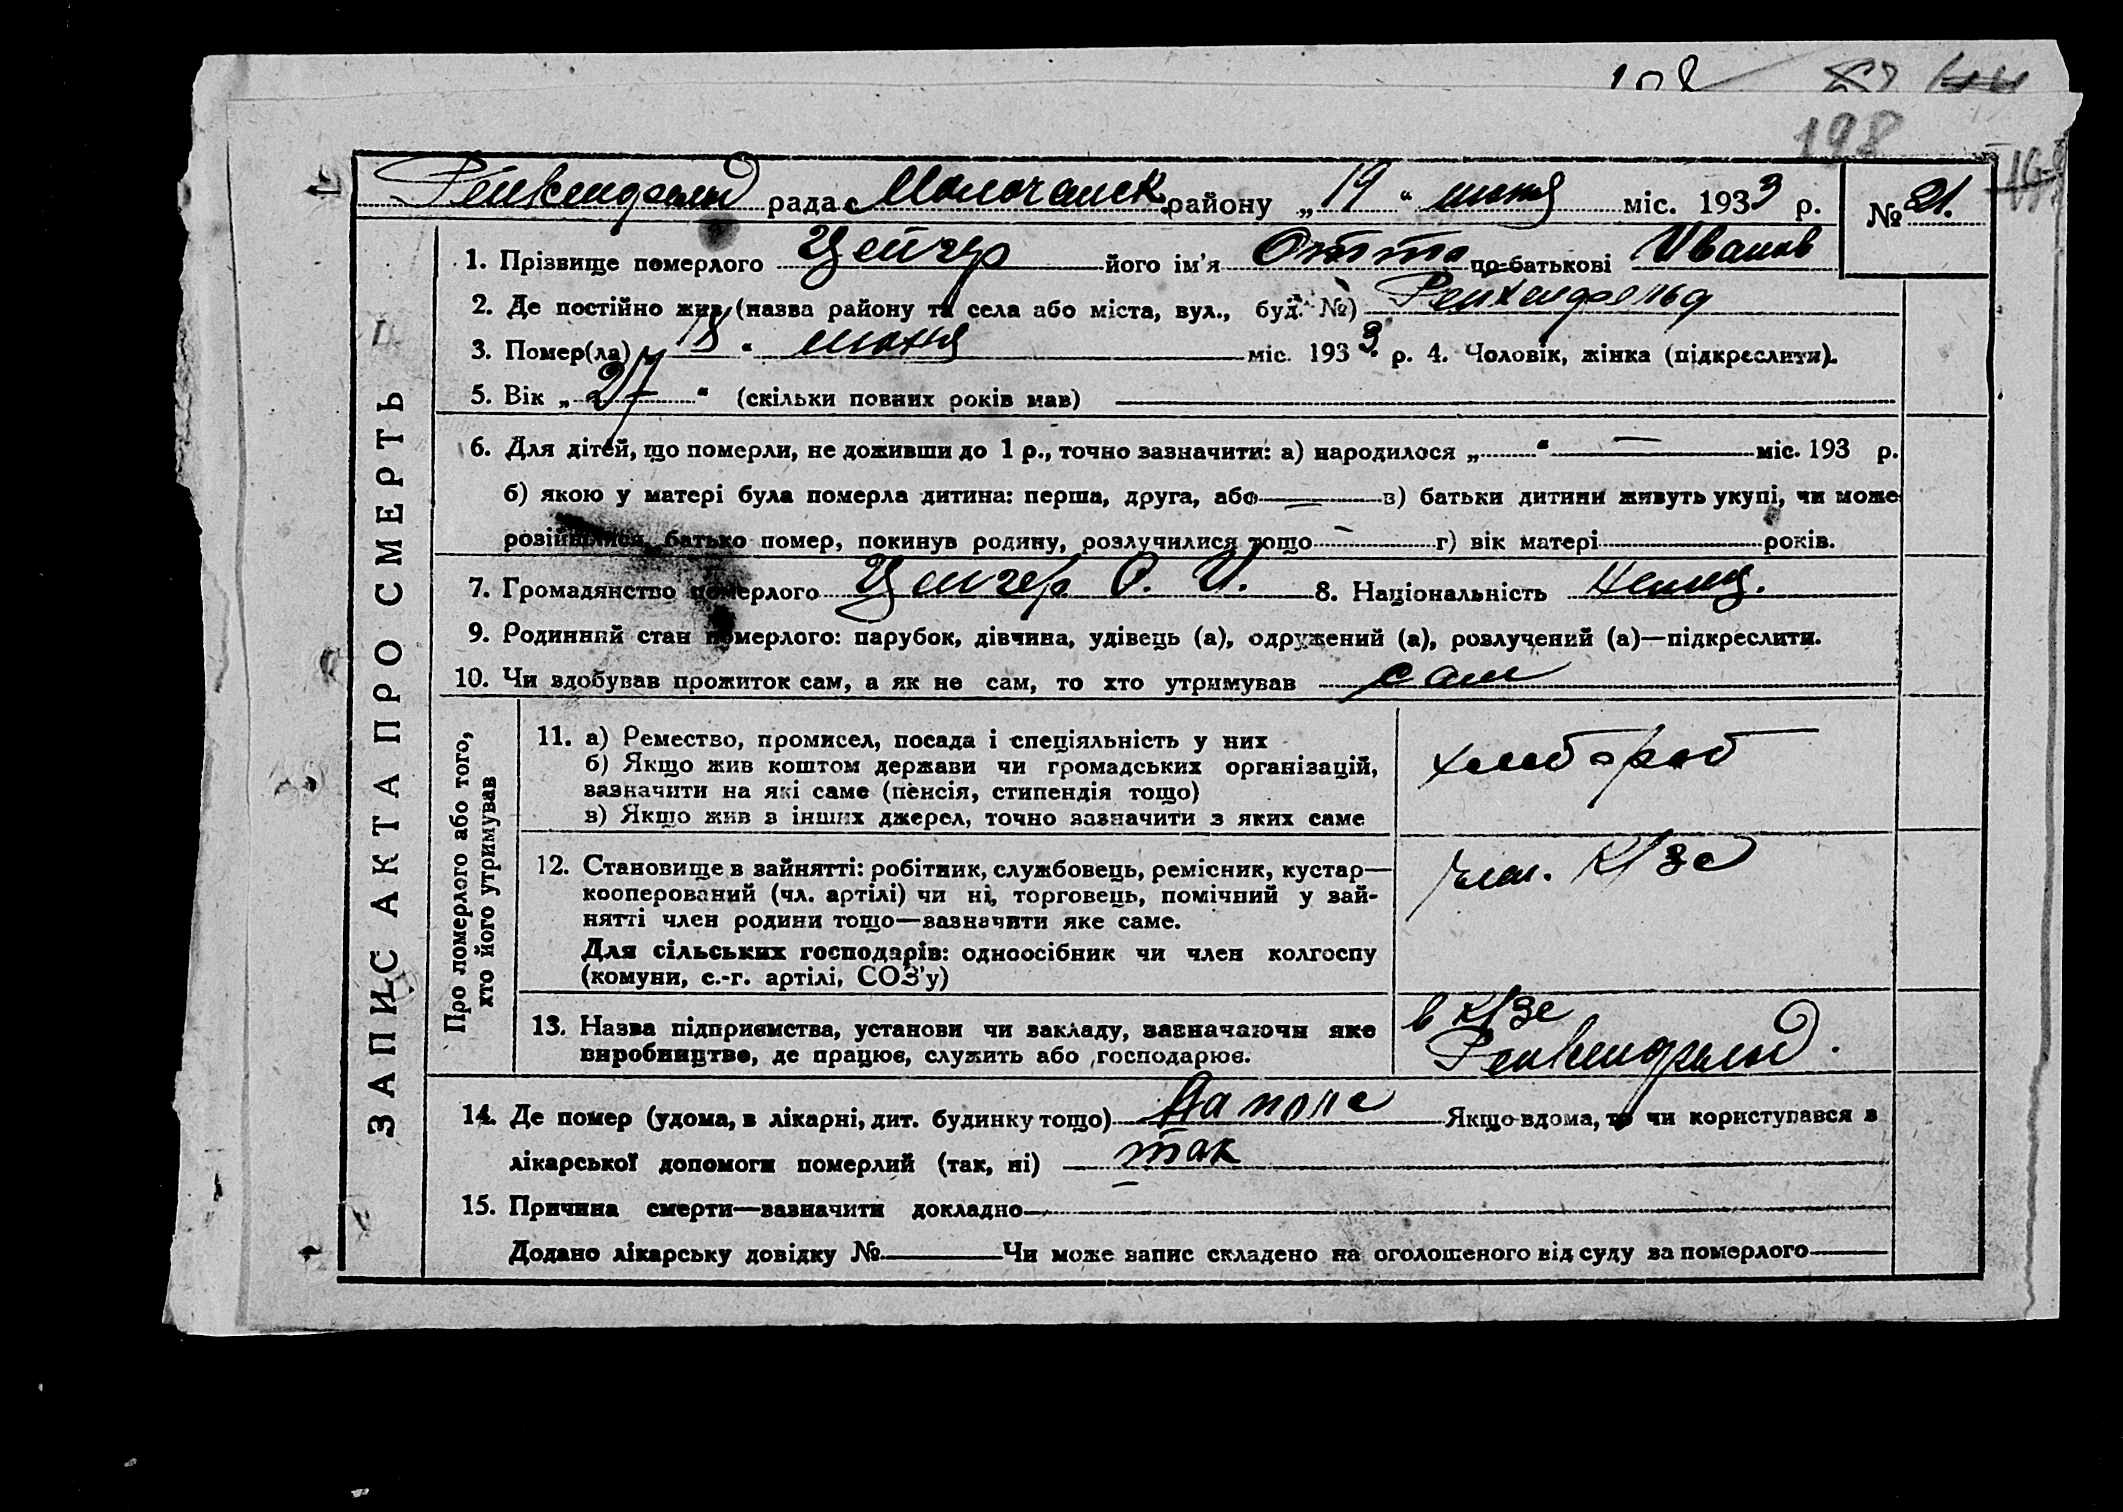 198
Рейкенфельд рада с Молочанск району „19“ июня міс. 1933 р. № 21.
ЗАПИС АКТА ПРО СМЕРТЬ
1. Прізвище померлого Цейгер його ім'я Отто по-батькові Иванов
2. Де постійно жив (назва району та села або міста, вул., буд. №) Рейкенфельд
3. Помер(ла) „18“ июня міс. 1933 р. 4. Чоловік, жінка (підкреслити).
5. Вік „27“ (скільки повних років мав)
6. Для дітей, що померли, не доживши до 1 р., точно зазначити: а) народилося „ “ — міс. 193 р.
б) якою у матері була померла дитина: перша, друга, або — в) батьки дитини живуть укупі, чи може
розійшлися, батько помер, покинув родину, розлучилися тощо — г) вік матері років.
7. Громадянство померлого Цейгер О. И. 8. Національність Немец.
9. Родинний стан померлого: парубок, дівчина, удівець (а), одружений (а), розлучений (а)—підкреслити.
10. Чи здобував прожиток сам, а як не сам, то хто утримував сам
Про померлого або того,
хто його утримував
11. а) Ремество, промисел, посада і спеціяльність у них
б) Якщо жив коштом держави чи громадських організацій,
зазначити на які саме (пенсія, стипендія тощо)
в) Якщо жив з інших джерел, точно зазначити з яких саме
хлебороб
12. Становище в зайнятті: робітник, службовець, ремісник, кустар—
кооперований (чл. артілі) чи ні, торговець, помічний у зай-
нятті член родини тощо—зазначити яке саме.
Для сільських господарів: одноосібник чи член колгоспу
(комуни, с.-г. артілі, СОЗ'у)
член. к/зе
13. Назва підприємства, установи чи закладу, зазначаючи яке
виробництво, де працює, служить або господарює.
в к/зе
Рейкенфельд.
14. Де помер (удома, в лікарні, дит. будинку тощо) На поле Якщо вдома, то чи користувався з
лікарської допомоги померлий (так, ні) так
15. Причина смерти—зазначити докладно —
Додано лікарську довідку № Чи може запис складено на оголошеного від суду за померлого